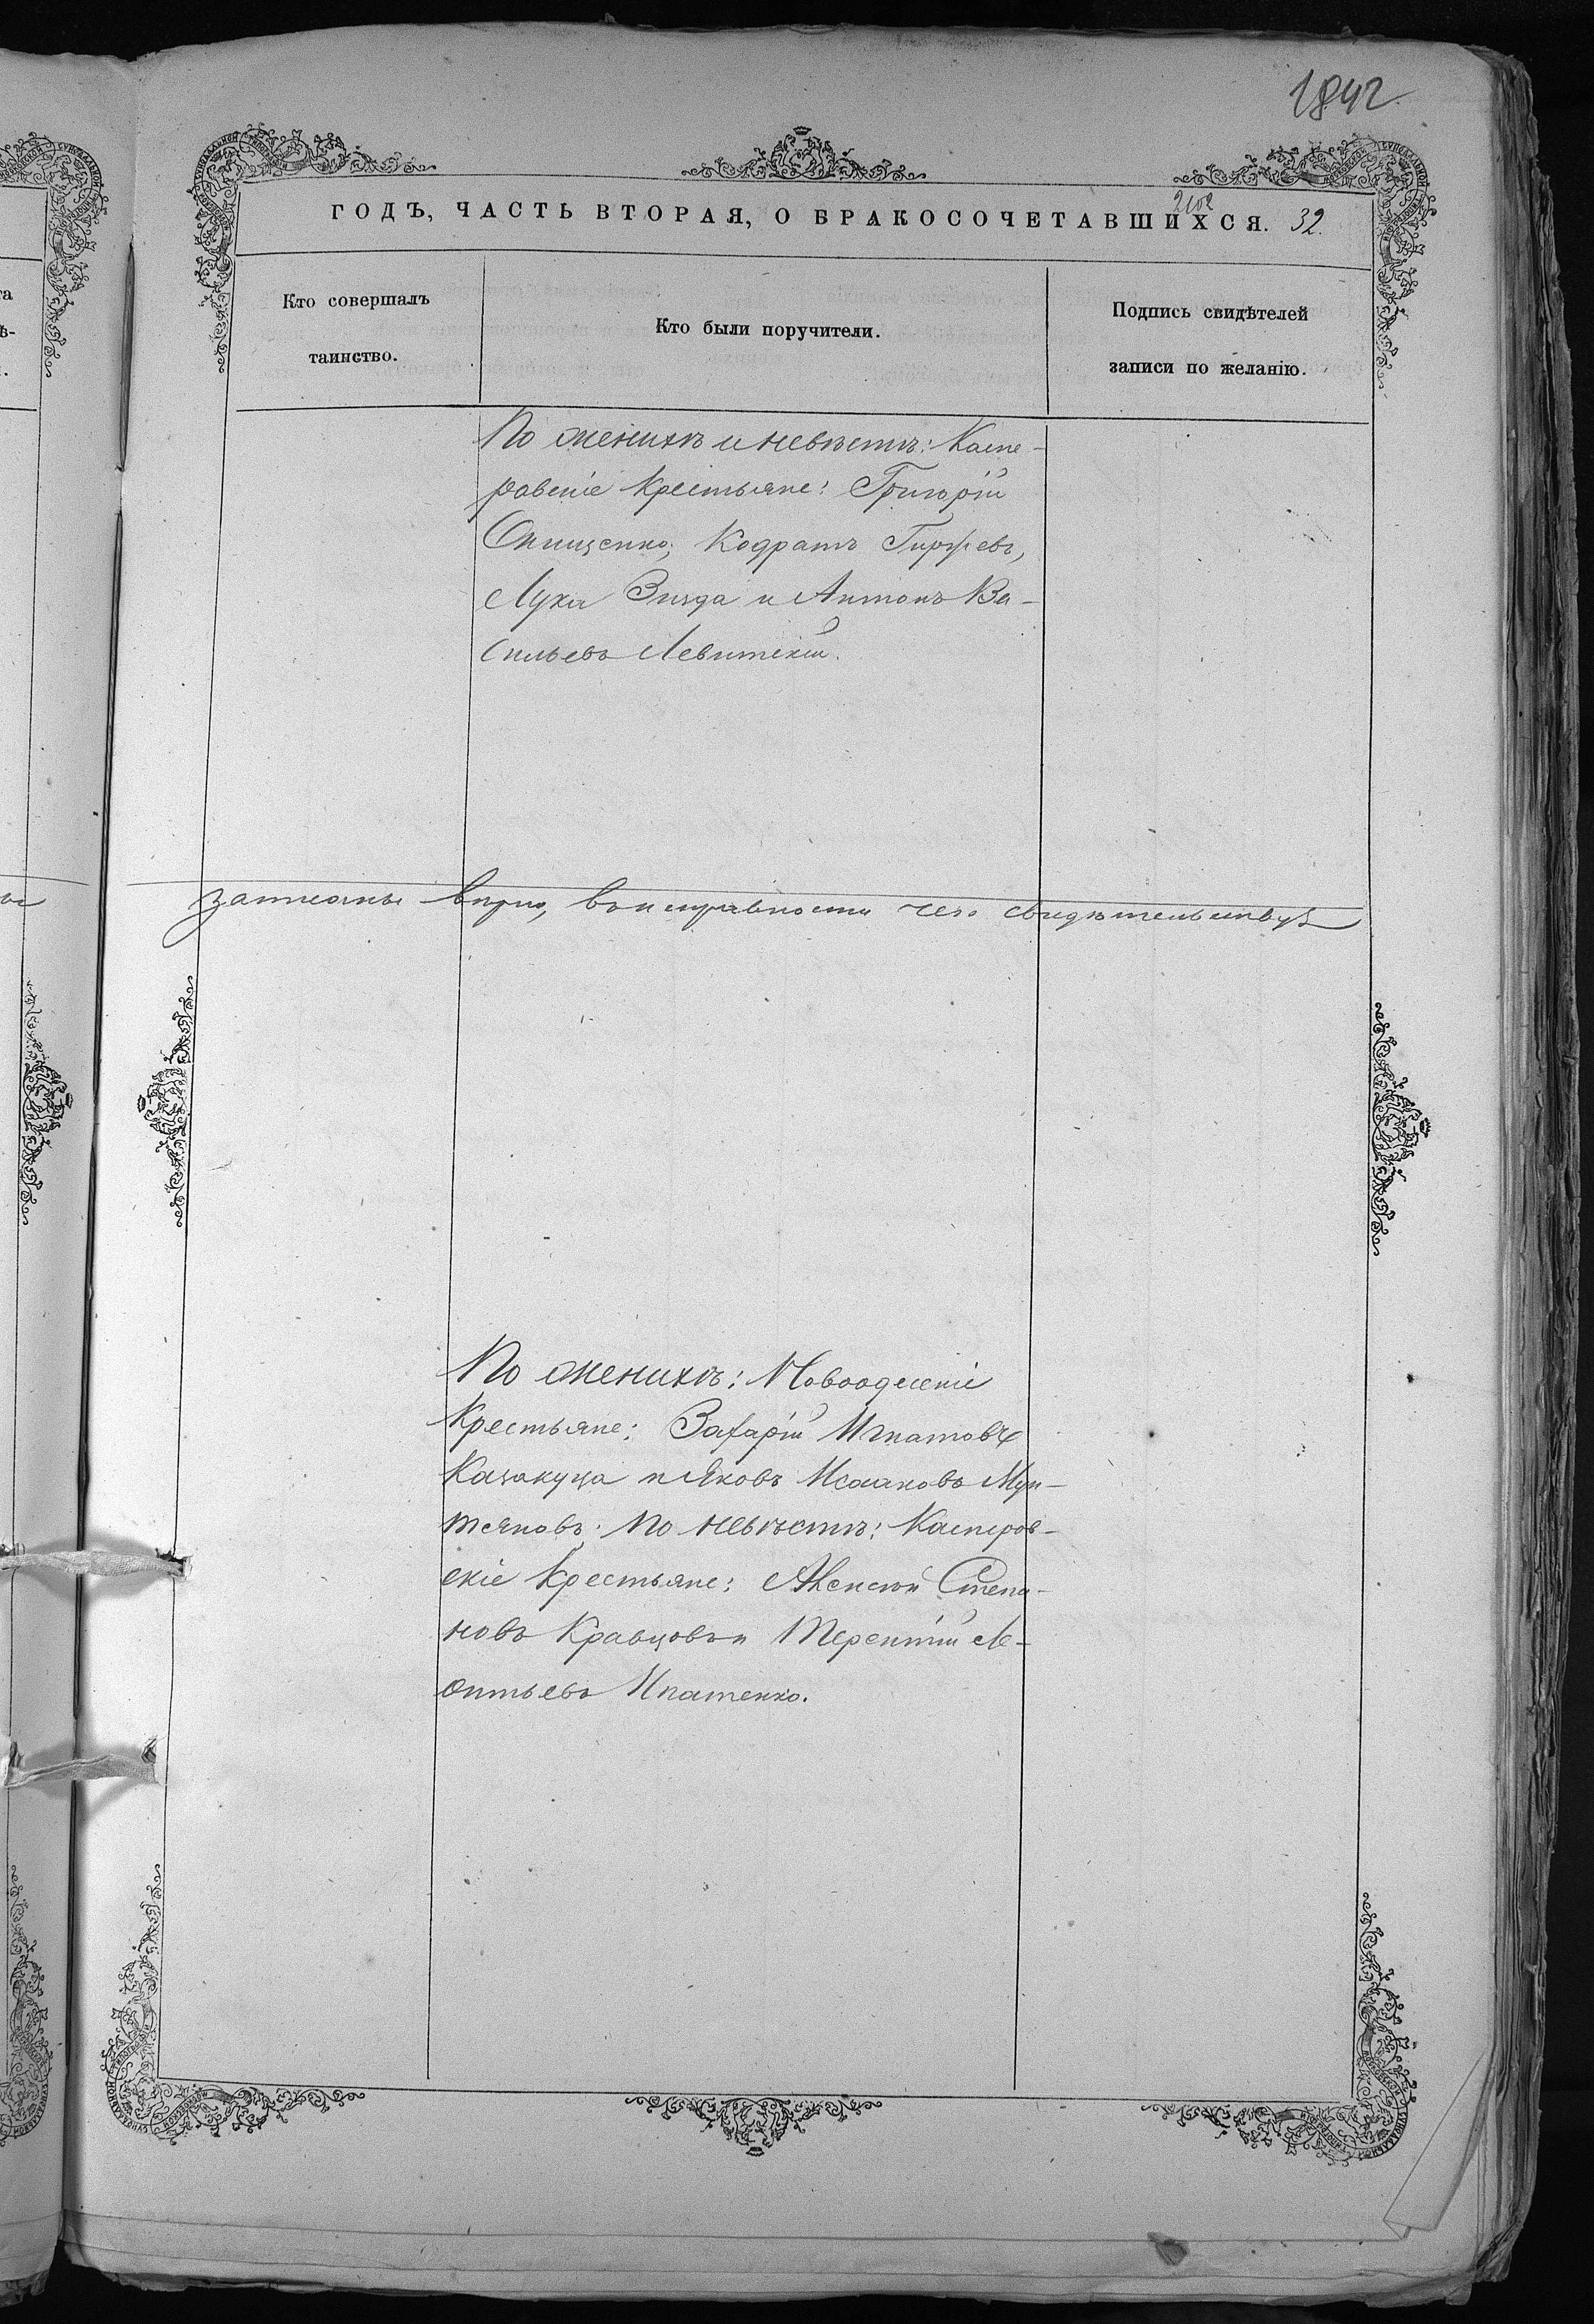 1842.
ГОДЪ, ЧАСТЬ ВТОРАЯ, О БРАКОСОЧЕТАВШИХСЯ. 32.
Кто совершалъ таинство.
Кто были поручители.
Подпись свидѣтелей записи по желанію.
По женихѣ и невѣстѣ: Каспе-
ровскіе крестьяне: Григорій
Онищенко, Кодратъ
Лука и Антонъ Ва-
сильевъ Левитскій.
записаны вѣрно, въ исправности чего свидѣтельствуѣ
По женихѣ: Новоодескіе
крестьяне: Захарій Игнатовъ
Казакуца и Яковъ Исааковъ Мун-
тяновъ; По невѣстѣ: Касперов-
скіе крестьяне: Алексѣй Степа-
новъ Кравцовъ и Терентій Ле-
онтьевъ Ипатенко.